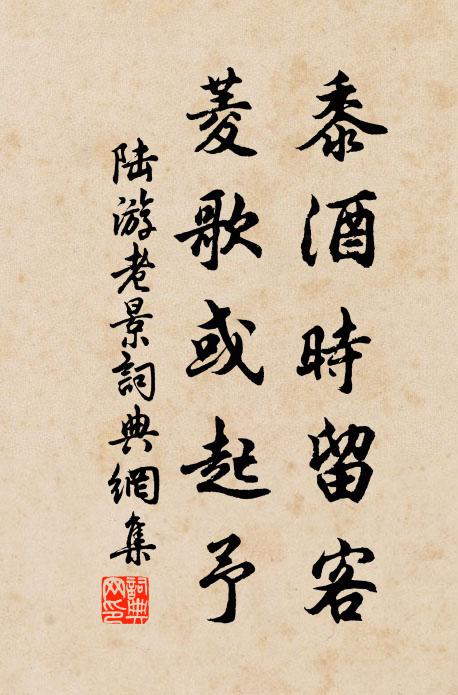 黍酒時留客
菱歌或起予
陸游老景詞典網集
詞典網印